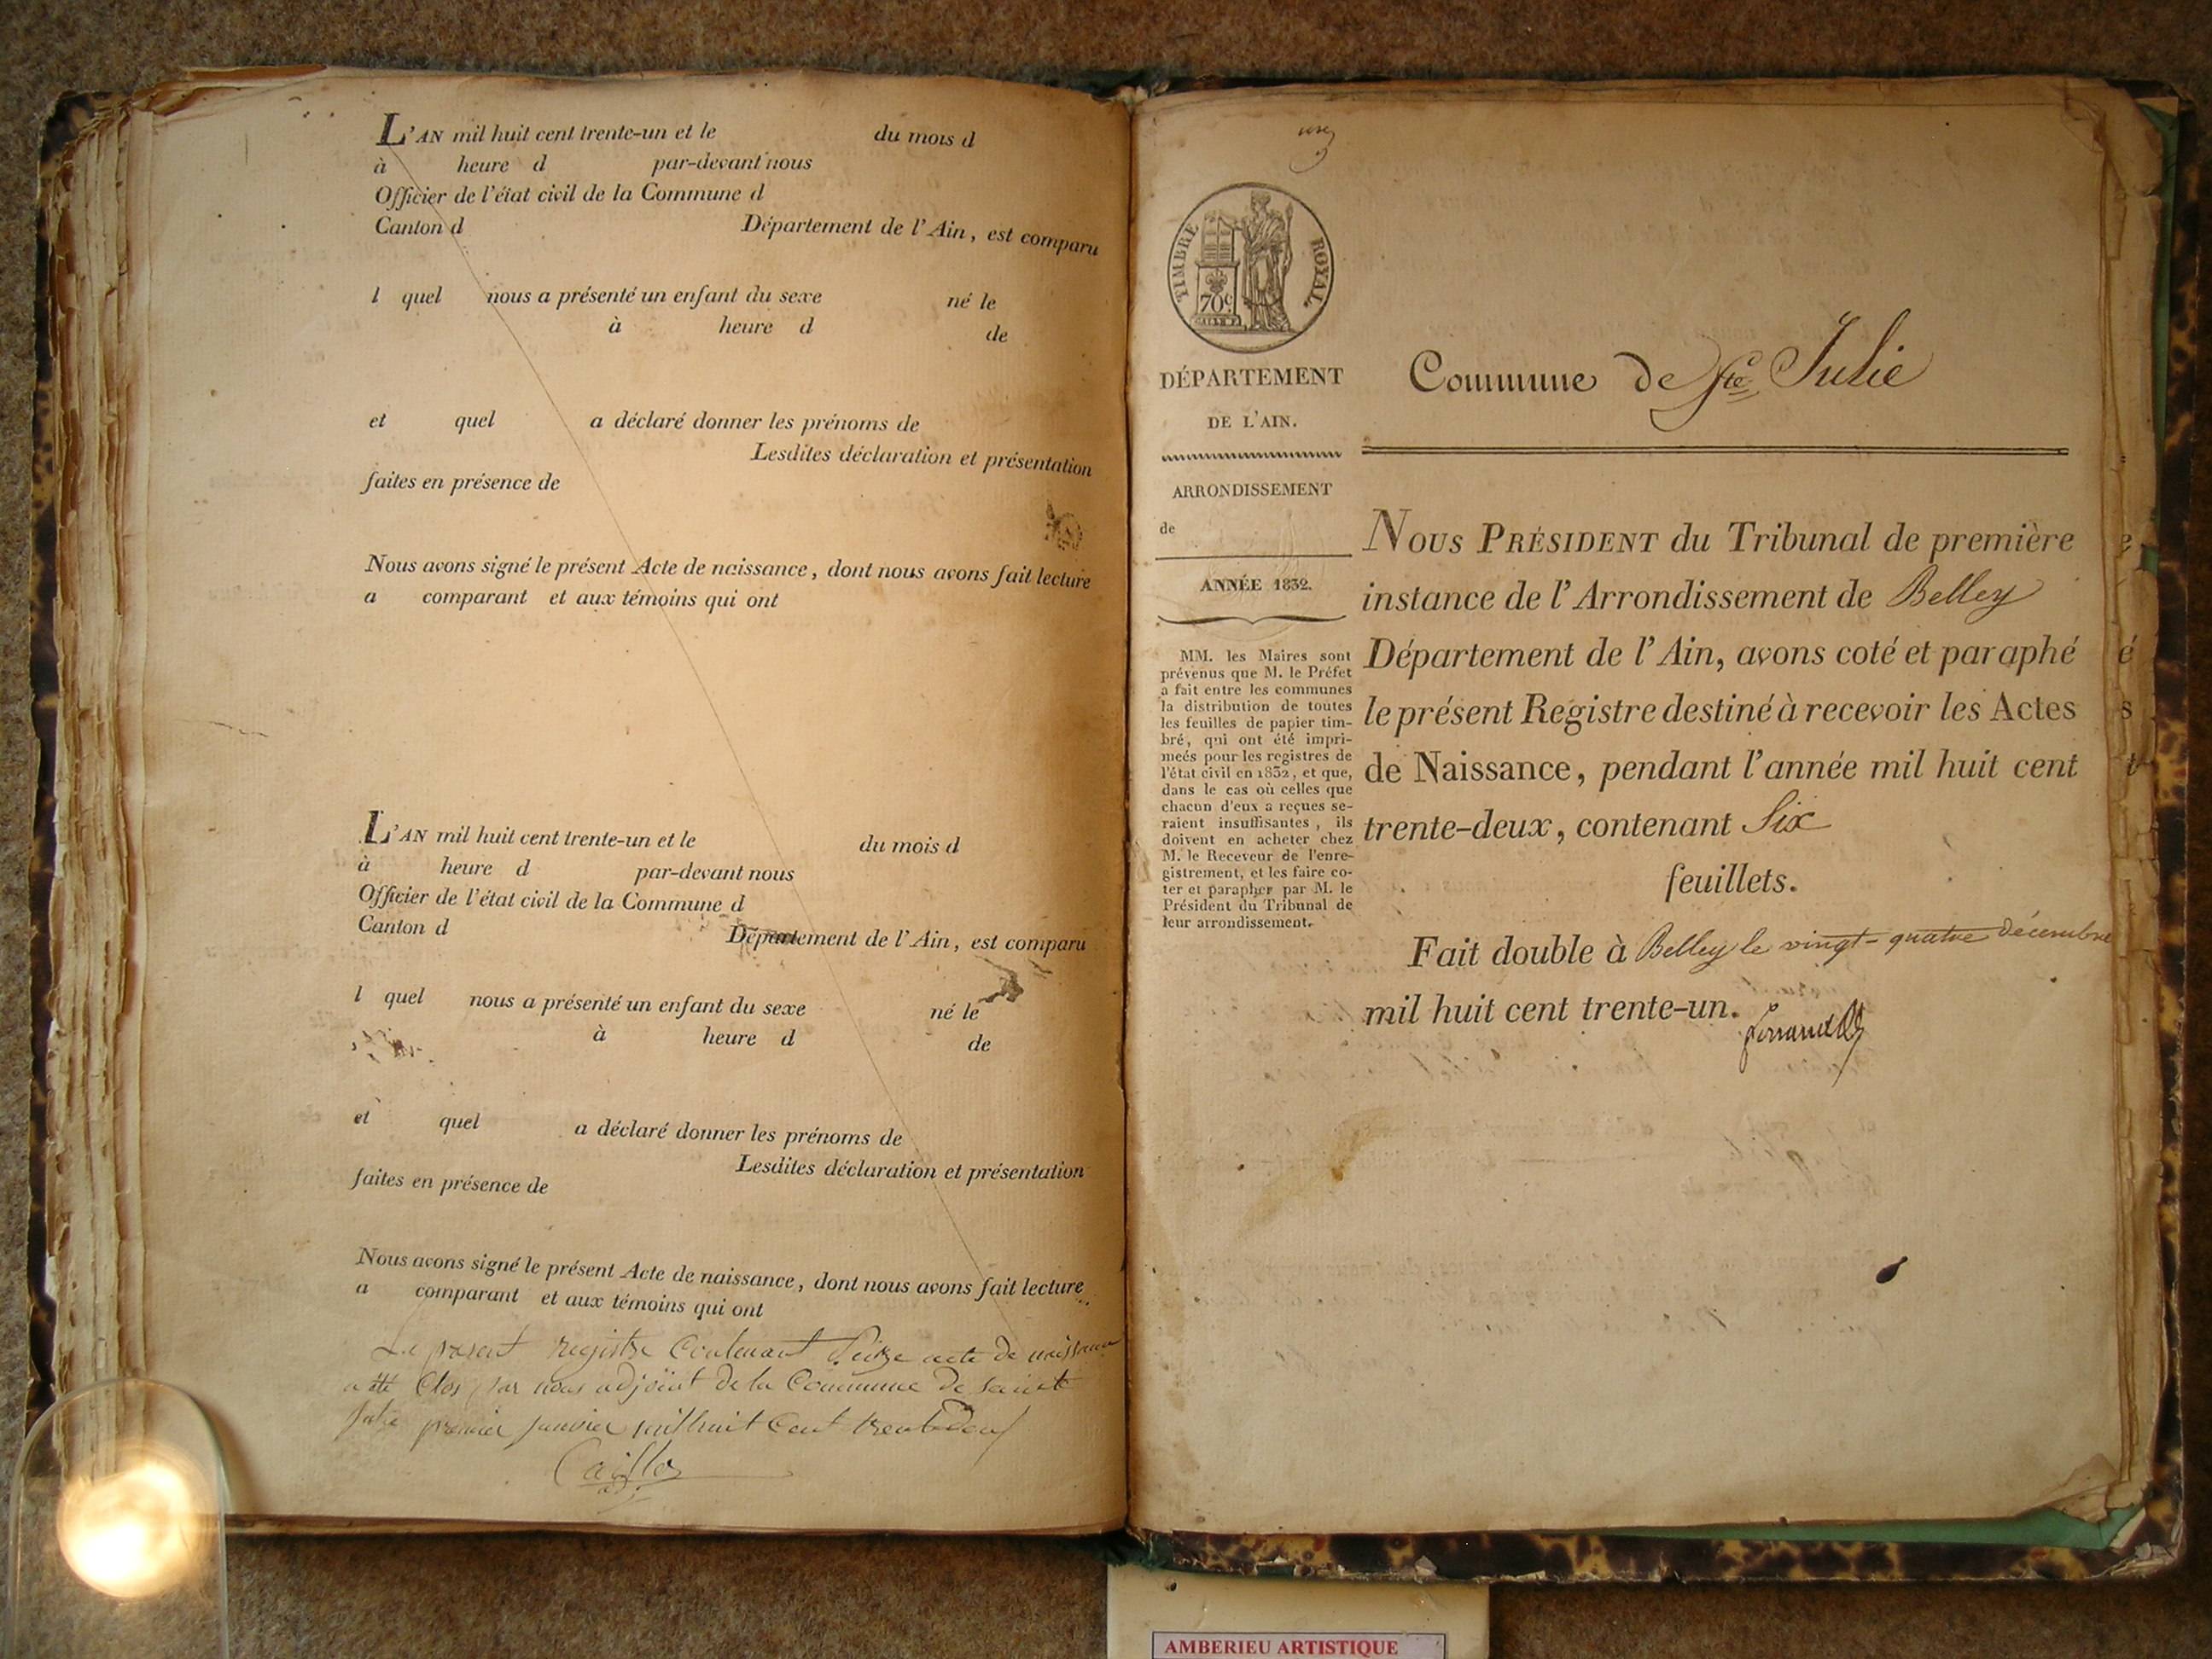 L'AN mil huit cent trente-un et le du mois d
à heure d par-devant nous
Officier de l'état civil de la Commune d
Canton d Département de l'Ain, est comparu
l quel nous a présenté un enfant du sexe né le
à heure d de
et quel a déclaré donner les prénoms de
Lesdites déclaration et présentation
faites en présence de
Nous avons signé le présent Acte de naissance, dont nous avons fait lecture
a comparant et aux témoins qui ont
L'AN mil huit cent trente-un et le du mois d
à heure d par-devant nous
Officier de l'état civil de la Commune d
Canton d Département de l'Ain, est comparu
l quel nous a présenté un enfant du sexe né le
à heure d de
et quel a déclaré donner les prénoms de
Lesdites déclaration et présentation
faites en présence de
Nous avons signé le présent Acte de naissance, dont nous avons fait lecture
a comparant et aux témoins qui ont
Le present registre Contenant acte de naissance
a été Clos par nous adjoint de la Commune de Sainte
Julie premier janvier mil huit Cent trente deux
TIMBRE ROYAL
70c
DÉPARTEMENT
DE L'AIN.
ARRONDISSEMENT
de
ANNÉE 1832.
MM. les Maires sont
prévenus que M. le Préfet
a fait entre les communes
la distribution de toutes
les feuilles de papier tim-
bré, qui ont été impri-
meés pour les registres de
l'état civil en 1832, et que,
dans le cas où celles que
chacun d'eux a reçues se-
raient insuffisantes, ils
doivent en acheter chez
M. le Receveur de l'enre-
gistrement, et les faire co-
ter et parapher par M. le
Président du Tribunal de
leur arrondissement.
Commune de Ste Julie
NOUS PRÉSIDENT du Tribunal de première
instance de l'Arrondissement de Belley
Département de l'Ain, avons coté et paraphé
le présent Registre destiné à recevoir les Actes
de Naissance, pendant l'année mil huit cent
trente-deux, contenant Six
feuillets.
Fait double à Belley le vingt-quatre décembre
mil huit cent trente-un.
e
é
s
t
AMBERIEU ARTISTIQUE